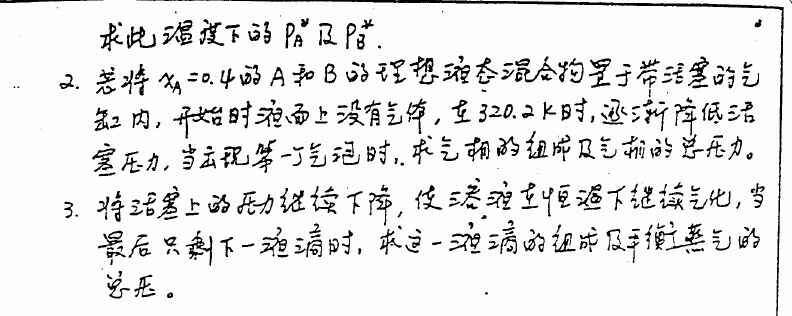 求此温度下的 P_A* 及 P_B*.
2. 若将 x_A=0.4 的 A 和 B 的理想液态混合物置于带活塞的气
缸内，开始时液面上没有气体，在 320.2K 时，逐渐降低活
塞压力，当出现第一个气泡时，求气相的组成及气相的总压力。
3. 将活塞上的压力继续下降，使溶液在恒温下继续气化，当
最后只剩下一液滴时，求这一液滴的组成及平衡蒸气的
总压。